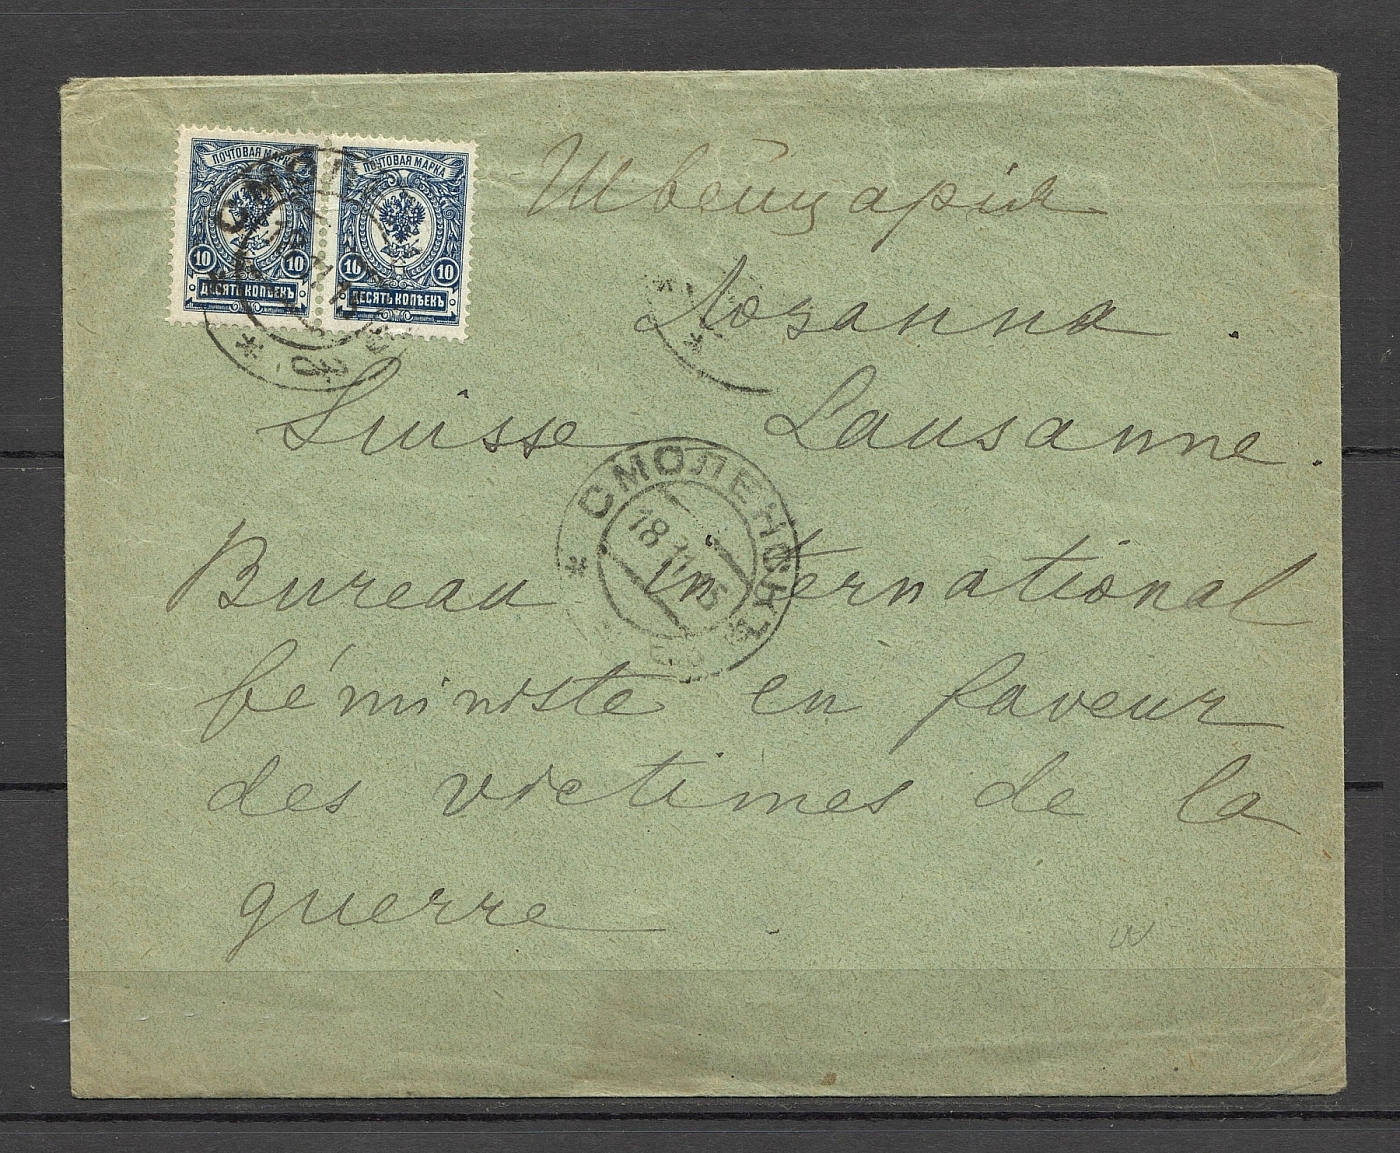 ПОЧТОВАЯ МАРКА ПОЧТОВАЯ МАРКА
10 10 10 10
ДЕСЯТЬ КОПѢЕКЪ ДЕСЯТЬ КОПѢЕКЪ
Швейцарія
Лозанна.
Suisse Lausanne.
СМОЛЕНСКЪ
Bureau international
féministe en faveur
des victimes de la
guerre.